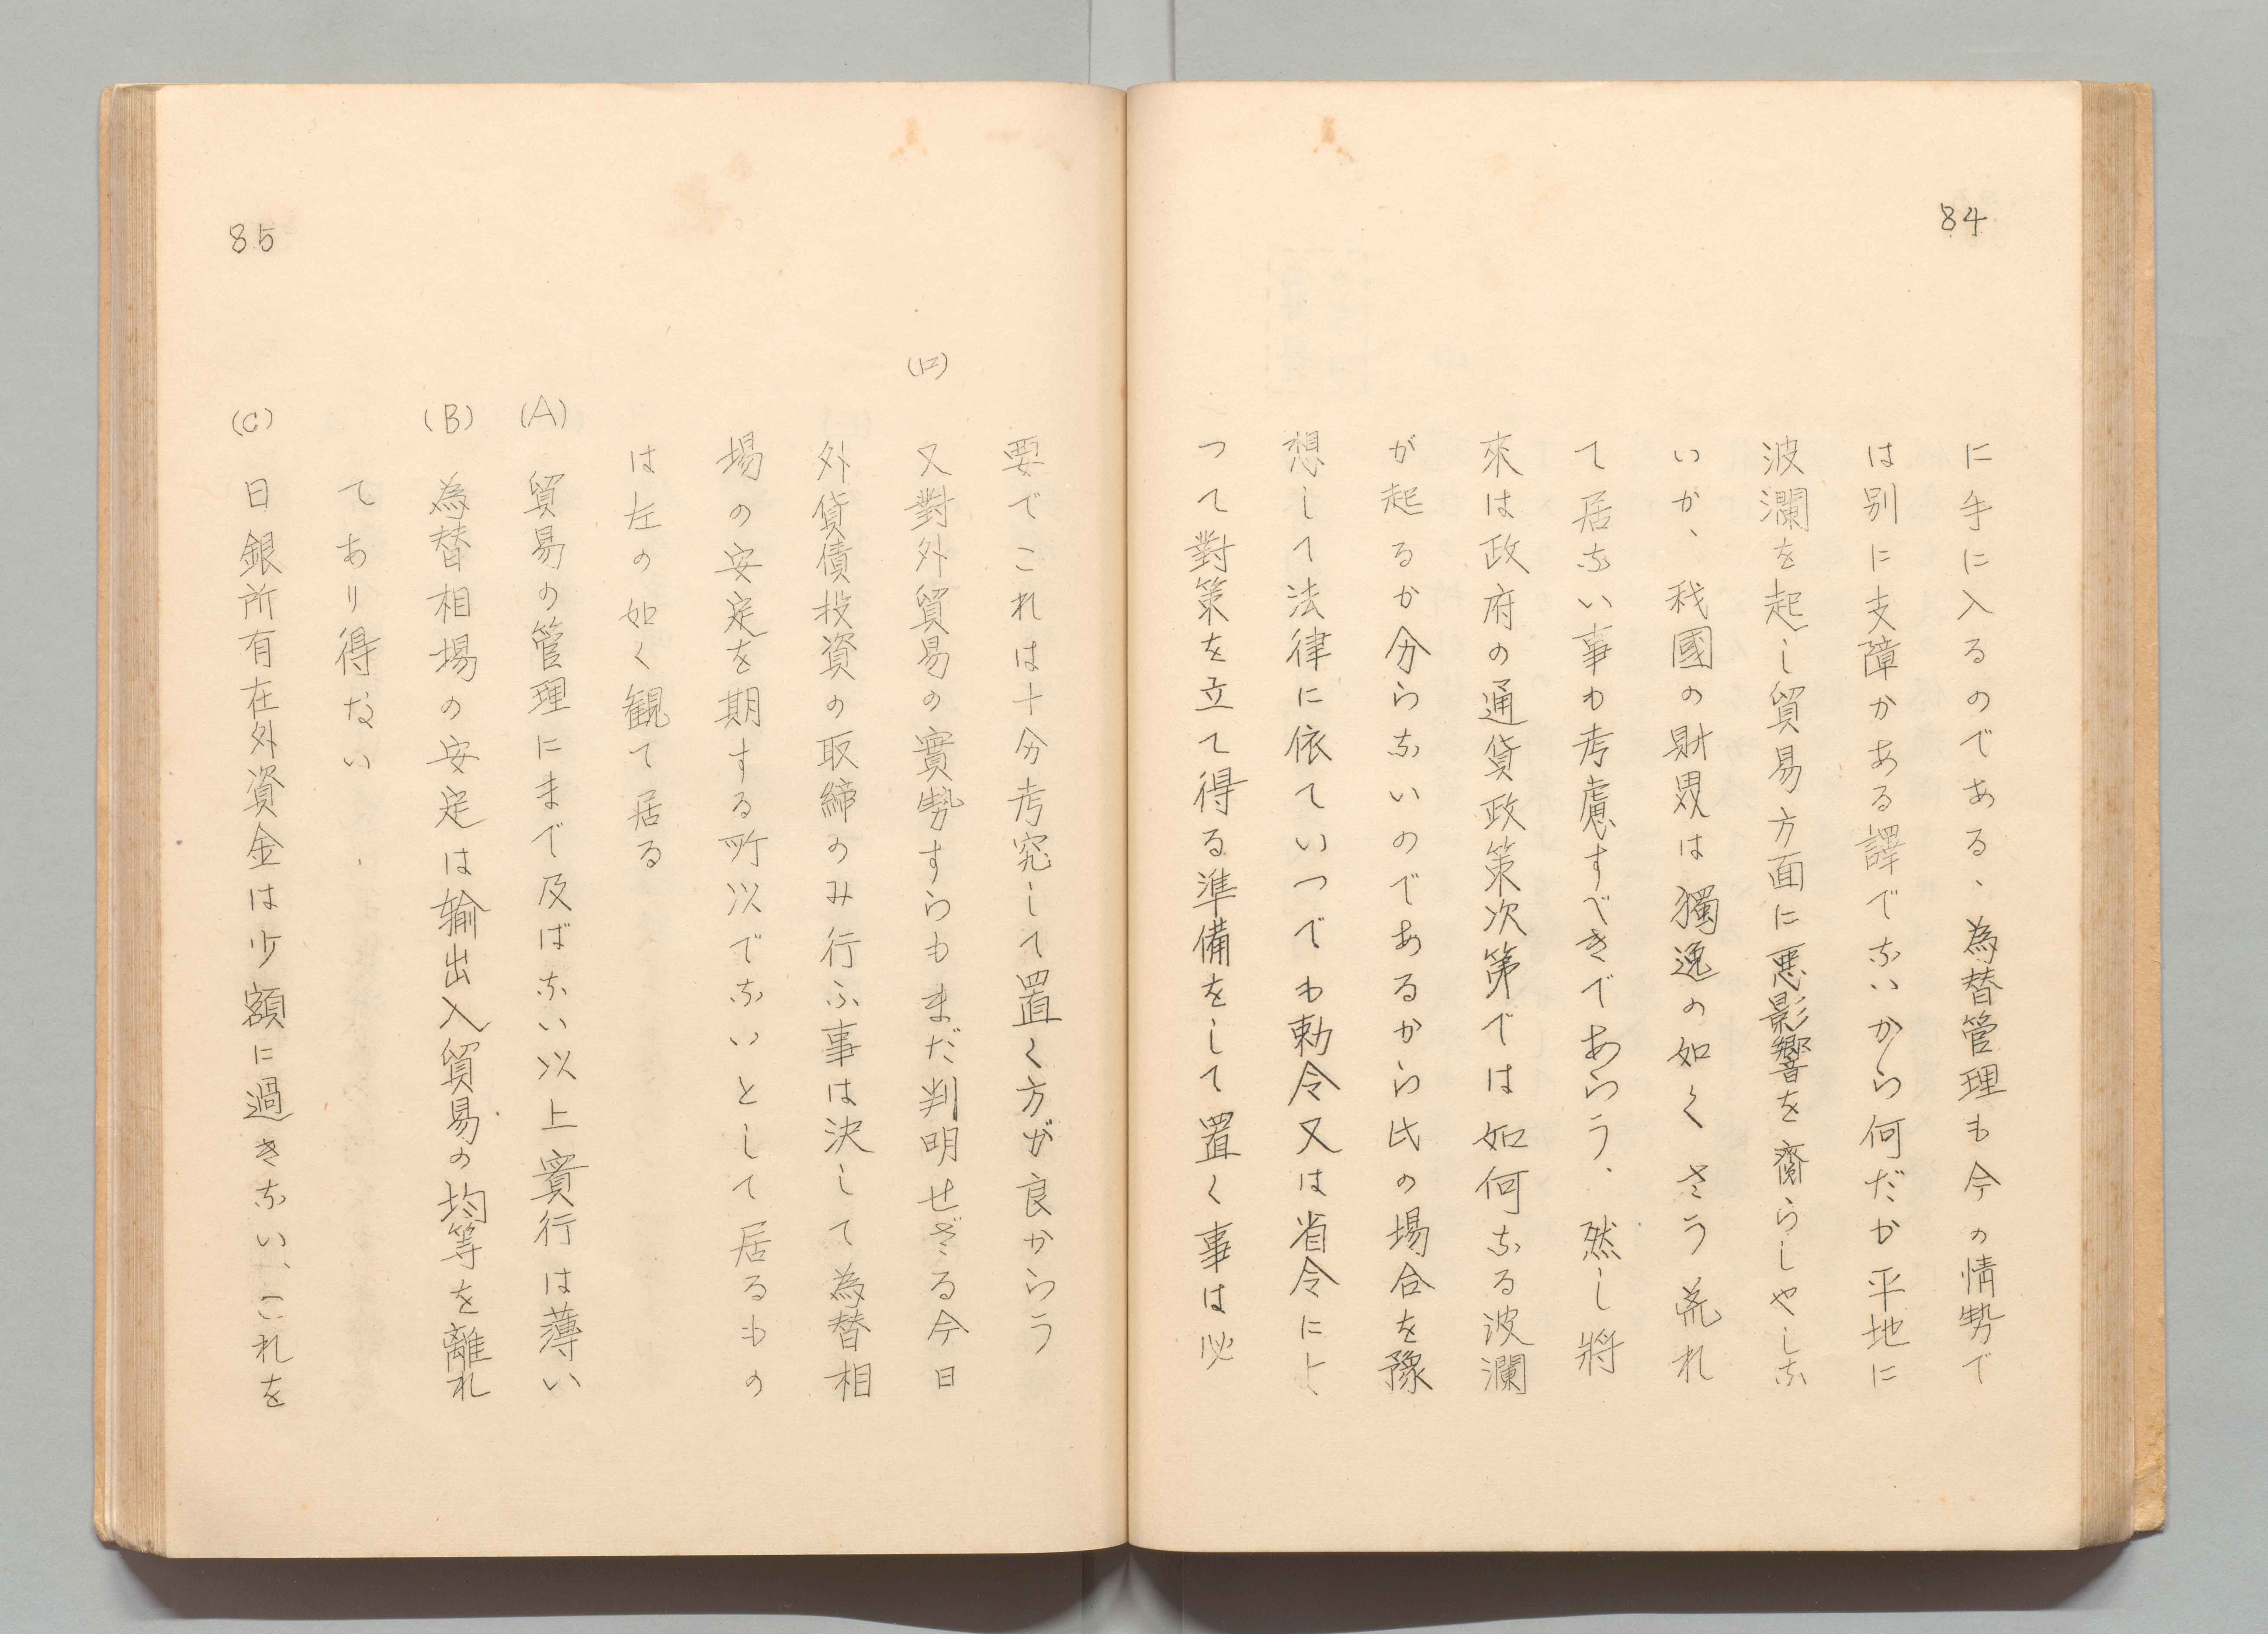 84
に手に入るのである、為替管理も今の情勢で
は別に支障かある譯でないから何だか平地に
波瀾を起し貿易方面に悪影響を齎らしやしな
いか、我國の財界は獨逸の如くさう荒れ
て居ない事も考慮すべきであらう、然し將
來は政府の通貨政策次第では如何なる波瀾
が起るか分らないのであるから此の場合を豫
想して法律に依ていつでも勅令又は省令によ
つて對策を立て得る準備をして置く事は必
要でこれは十分考究して置く方が良からう
(ロ) 又對外貿易の實勢すらもまだ判明せざる今日
外貨債投資の取締のみ行ふ事は決して為替相
場の安定を期する所以でないとして居るもの
は左の如く観て居る
(A) 貿易の管理にまで及ばない以上實行は薄い
(B) 為替相場の安定は輸出入貿易の均等を離れ
てあり得ない
(C) 日銀所有在外資金は少額に過きない、これを
85